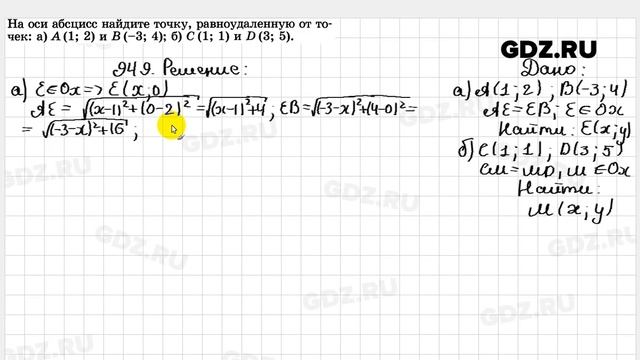 На оси абсцисс найдите точку, равноудаленную от то-
чек: а) A (1; 2) и B (−3; 4); б) C (1; 1) и D (3; 5).
GDZ.RU
949. Решение:
а) E∈Ox => E(x;0)
AE = √((x-1)²+(0-2)²) = √((x-1)²+4); EB = √((-3-x)²+(4-0)²) =
= √((-3-x)²+16);
Дано:
а) A(1;2); B(-3;4)
AE = EB; E∈Ox
Найти: E(x;y)
б) C(1;1), D(3;5)
CM = MD, M∈Ox
Найти:
M(x;y)